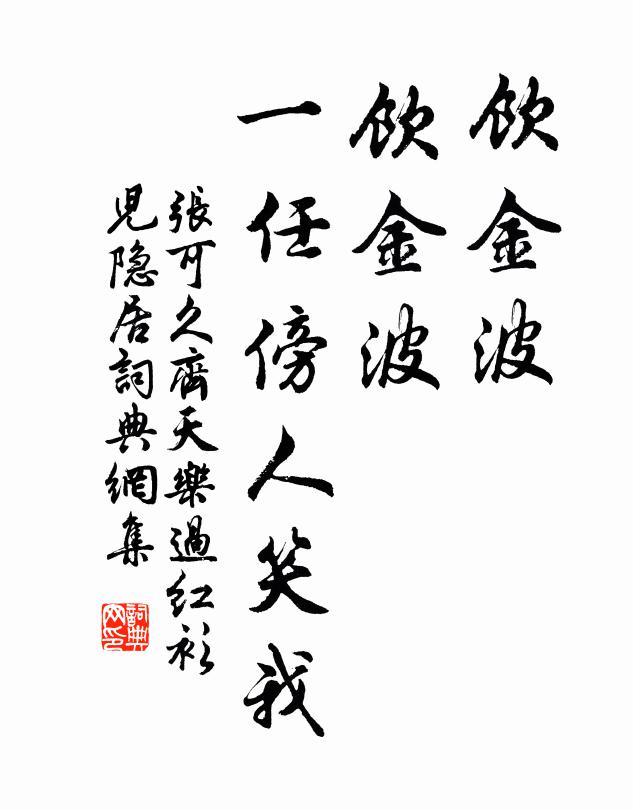 飲金波
飲金波
一任傍人笑我
張可久齊天樂過红衫
兒隐居詞典網集
詞典网印